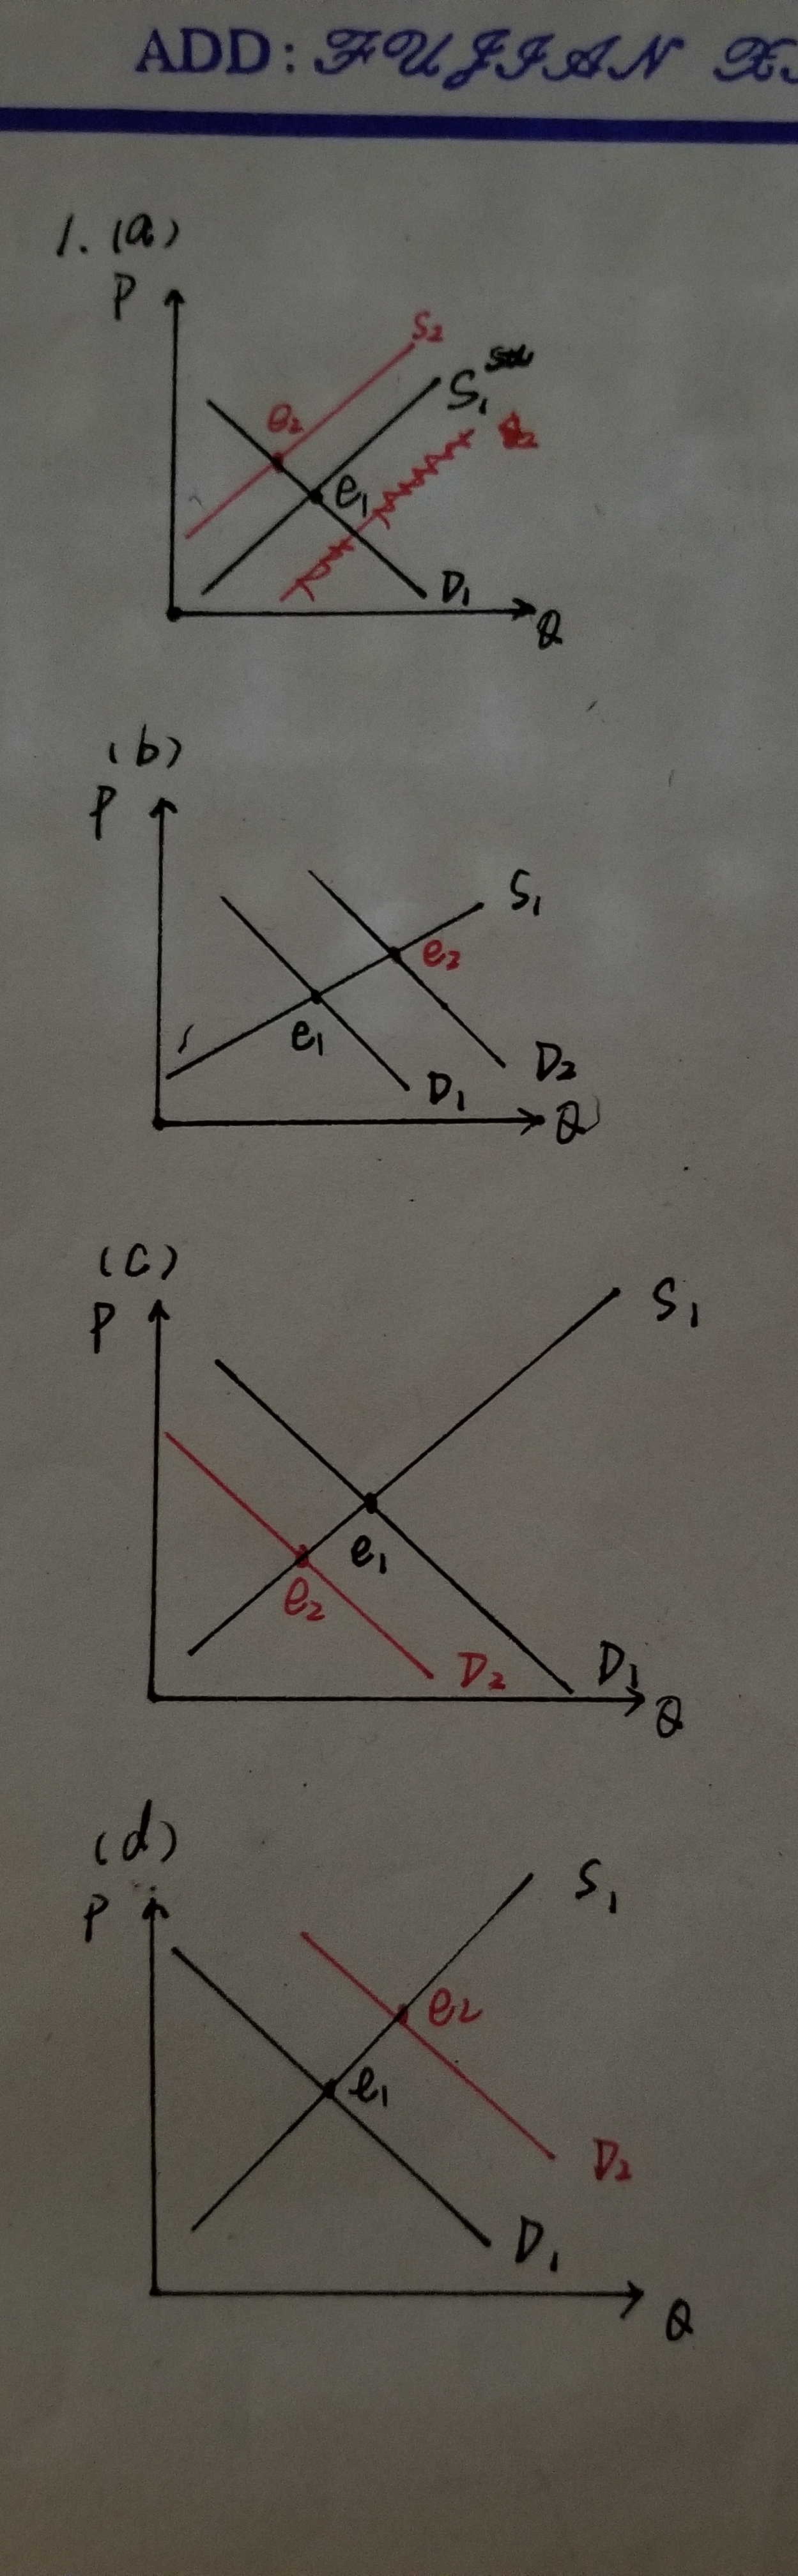 ADD: FUJIAN
1. (a)
P
S2
S1
e2
e1
D1
Q
(b)
P
S1
e2
e1
D2
D1
Q
(c)
P
S1
e1
e2
D2
D1
Q
(d)
P
S1
e2
e1
D2
D1
Q